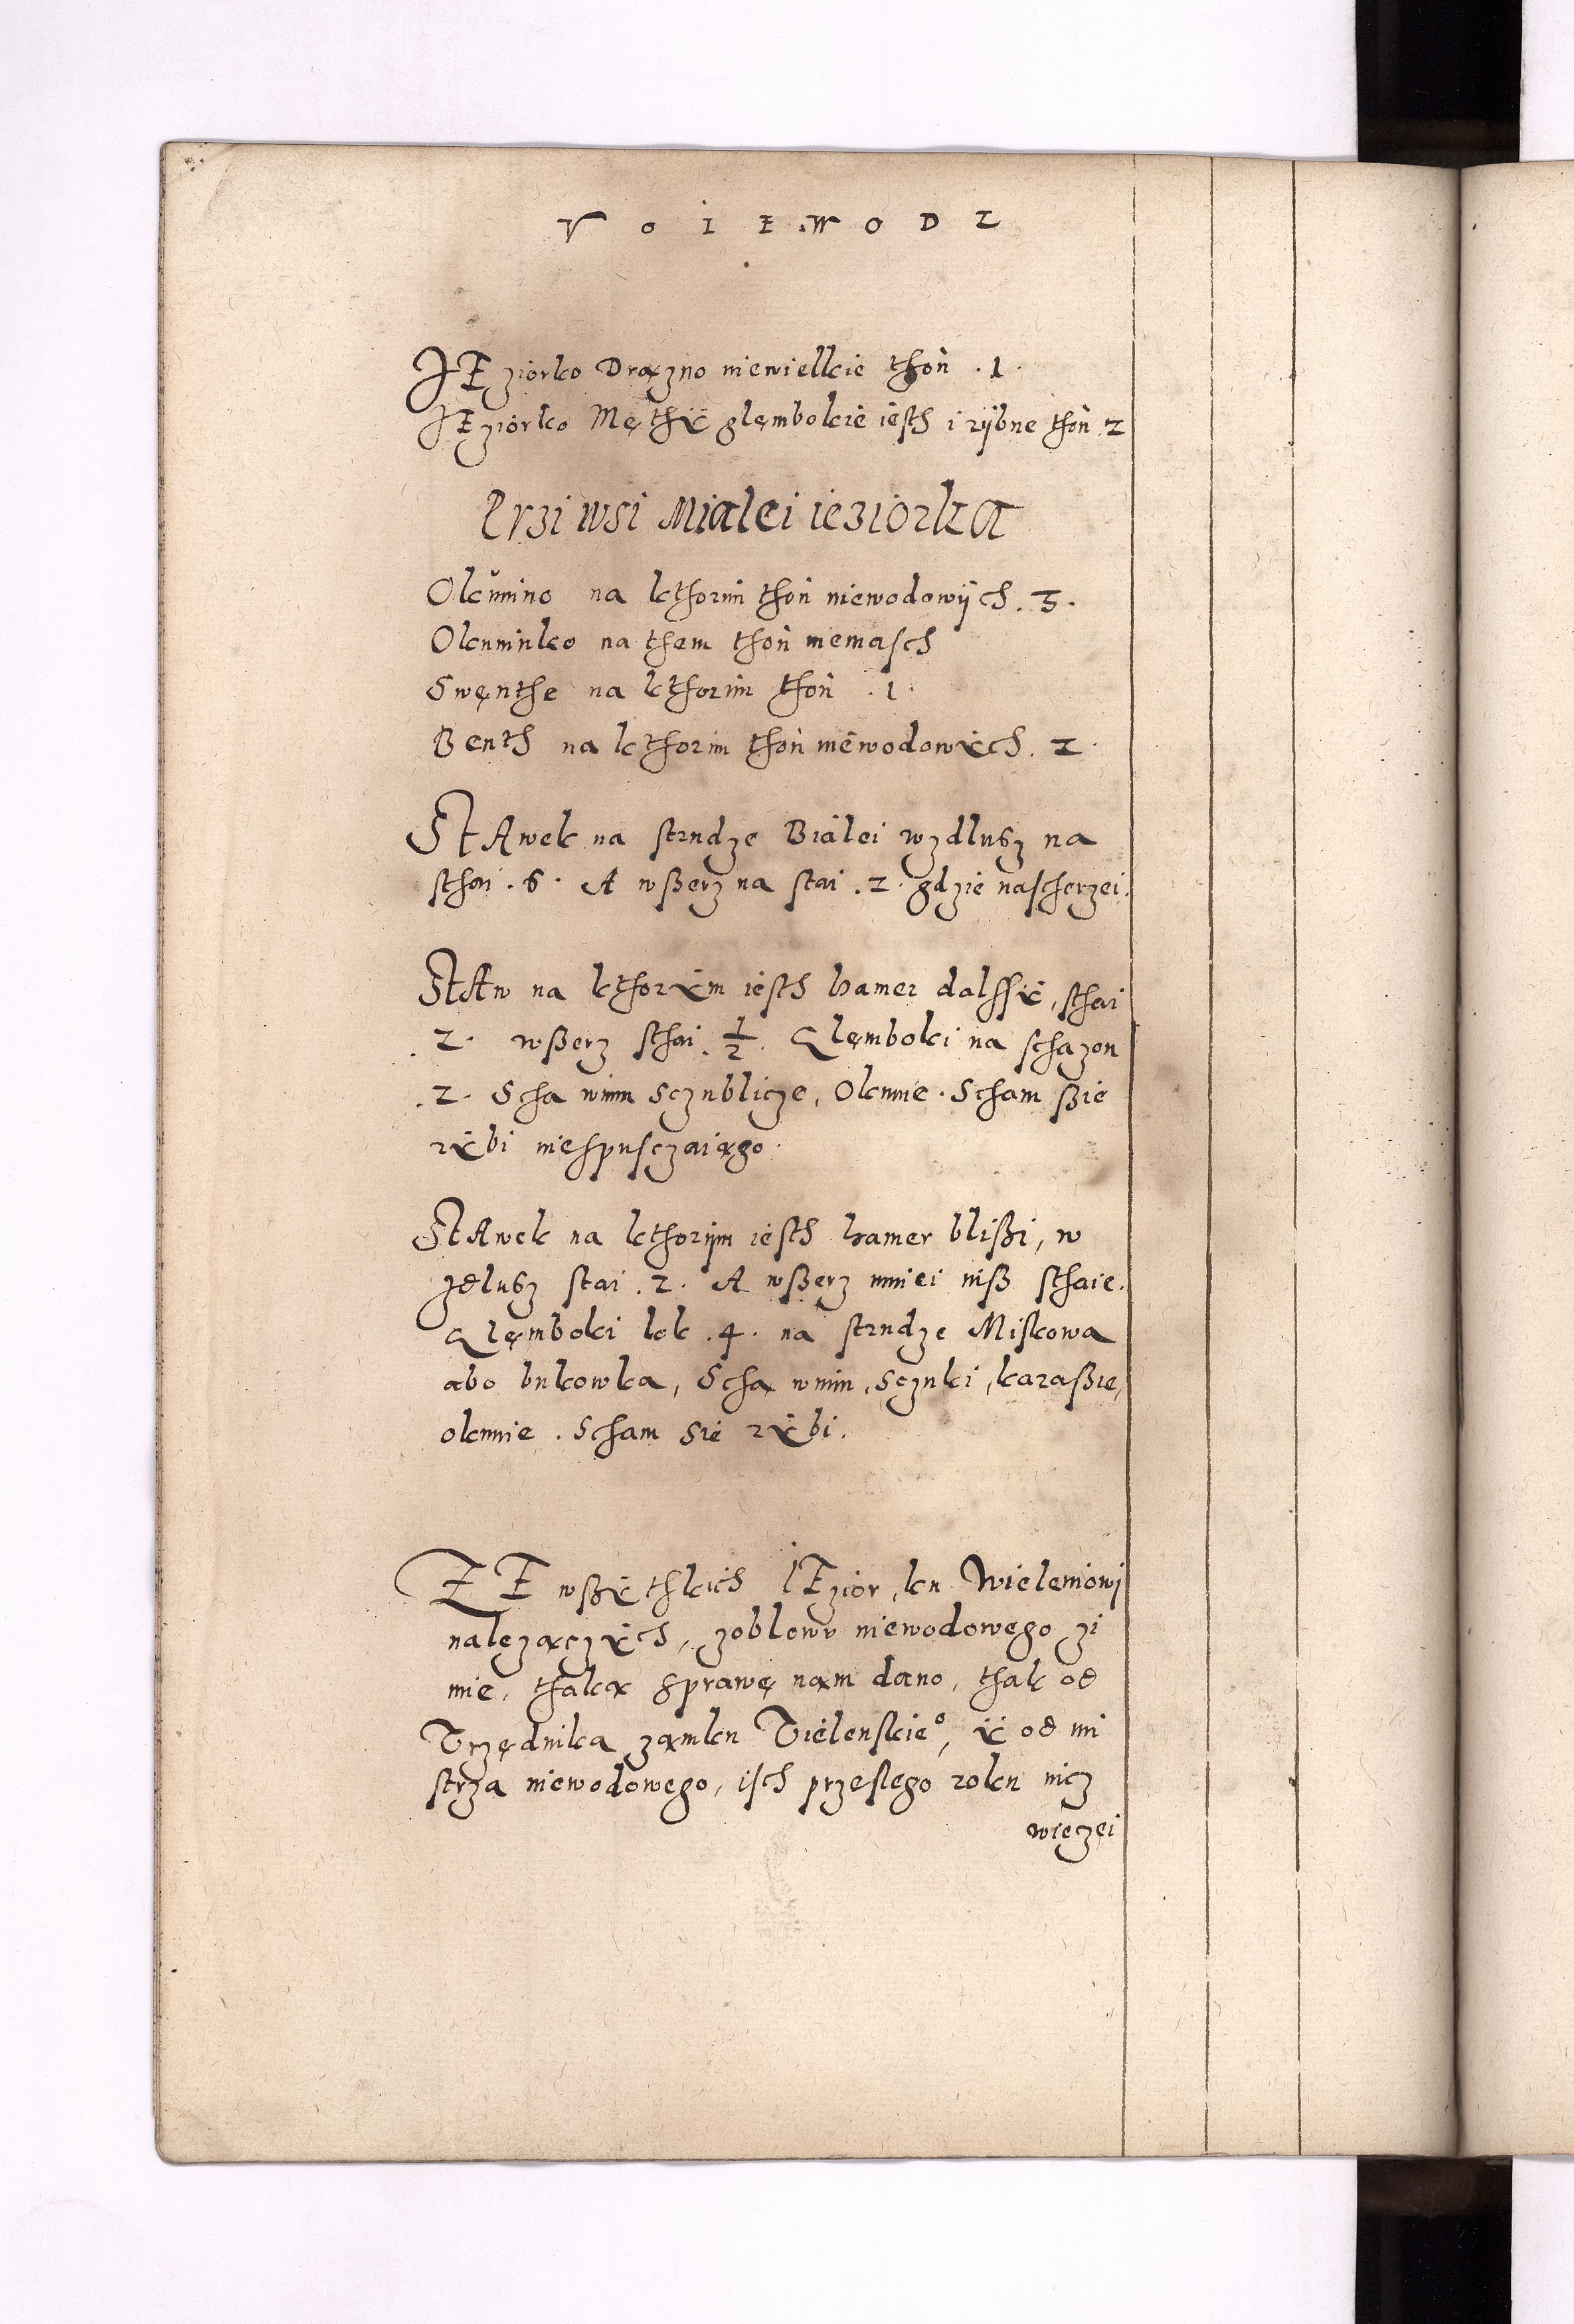 VOIEWODZ
JEziorko Drązno niewielkie thoń .1.
JEziorko Męthÿ głęmbokie iesth i rÿbne thoń .2
Przi wsi Mialei ieziorka
Okunino na kthorim thoń niewodowÿch .3.
Okuninko na them thoń niemasch
Swęnthe na kthorim thoń .1.
Benth na kthorim thoń niewodowÿch .2.
STAwek na strudze Bialei wzdlusz na
sthai .6. A wßerz na stai .2. gdzie nascherzei.
STAw na kthorÿm iesth hamer dalssÿ, sthai
.2. wßerz sthai .1/2. Glęmboki na schazon
.2. Scha wnim Sczublicze, Okunie. Scham ßie
rÿbi niespusczaiągo.
STAwek na kthorÿm iesth hamer blißi, w
zdlusz stai .2. A wßerz mniei niß sthaie.
Glęmboki lok .4. na strudze Miskowa
abo bukowka, Schą wnim, sczuki, karaßie,
okunie. Scham Sie rÿbi.
ZE wßÿthkich IEzior, ku Wieleniowi
nalezączÿch, zoblowu niewodowego zi
mie, thaką sprawę nąm dano, thak od
Vrzędnika zamku Vielenskie°, ÿ od mi
strza niewodowego, isch przeslego roku nicz
więczei